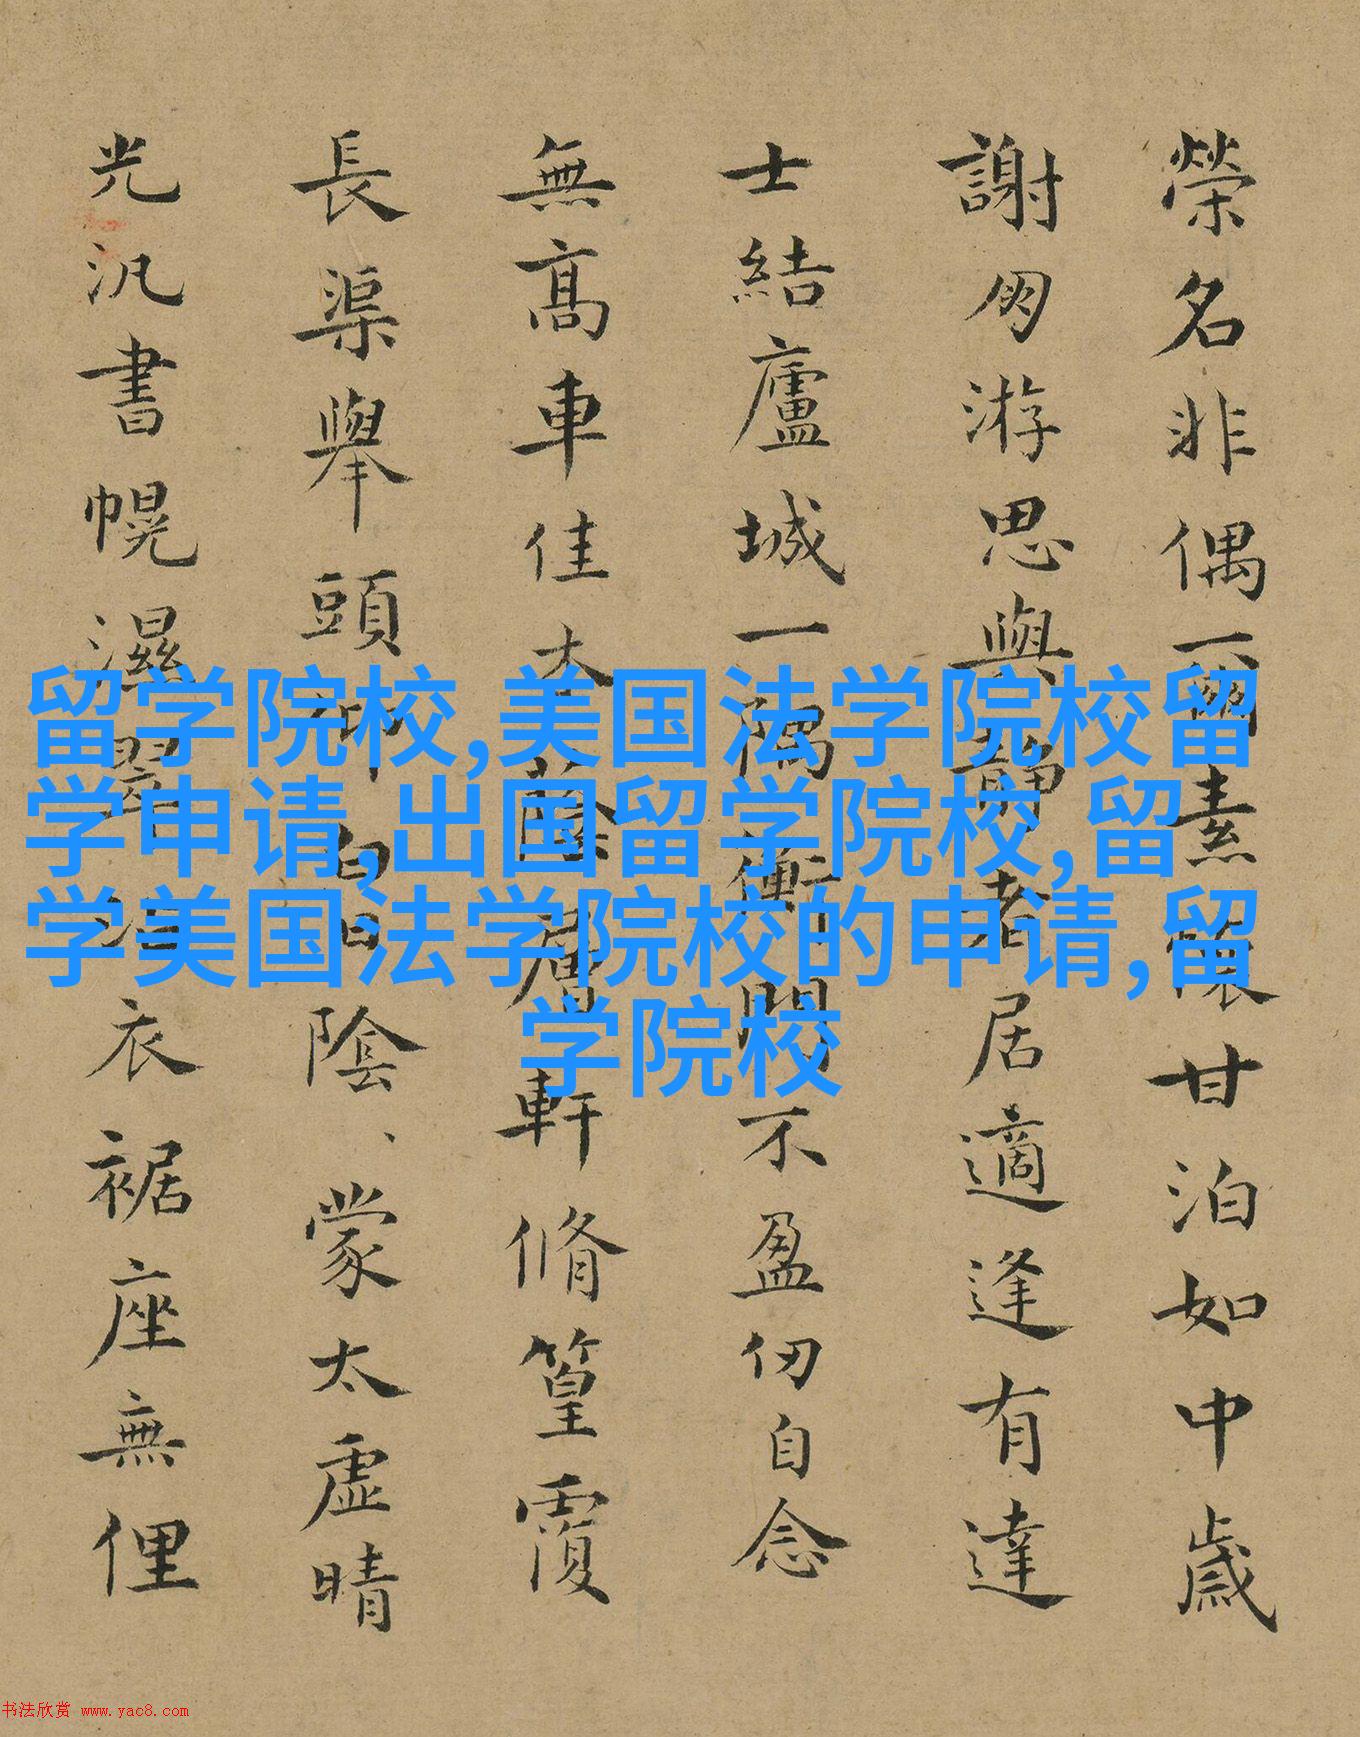 榮名非偶爾素懷甘泊如中歲
謝朋游思與靜者居適逢有達
士結廬城一隅衡門不盈仞自念
無髙車佳木蔭層軒脩篁覆
長渠舉頭仰白日陰、蒙太虛晴
光汎書幌濕翠衣裾座無俚
留学院校,美国法学院校留
学申请,出国留学院校,留
学美国法学院校的申请,留
学院校
书法欣赏 www.yac8.com